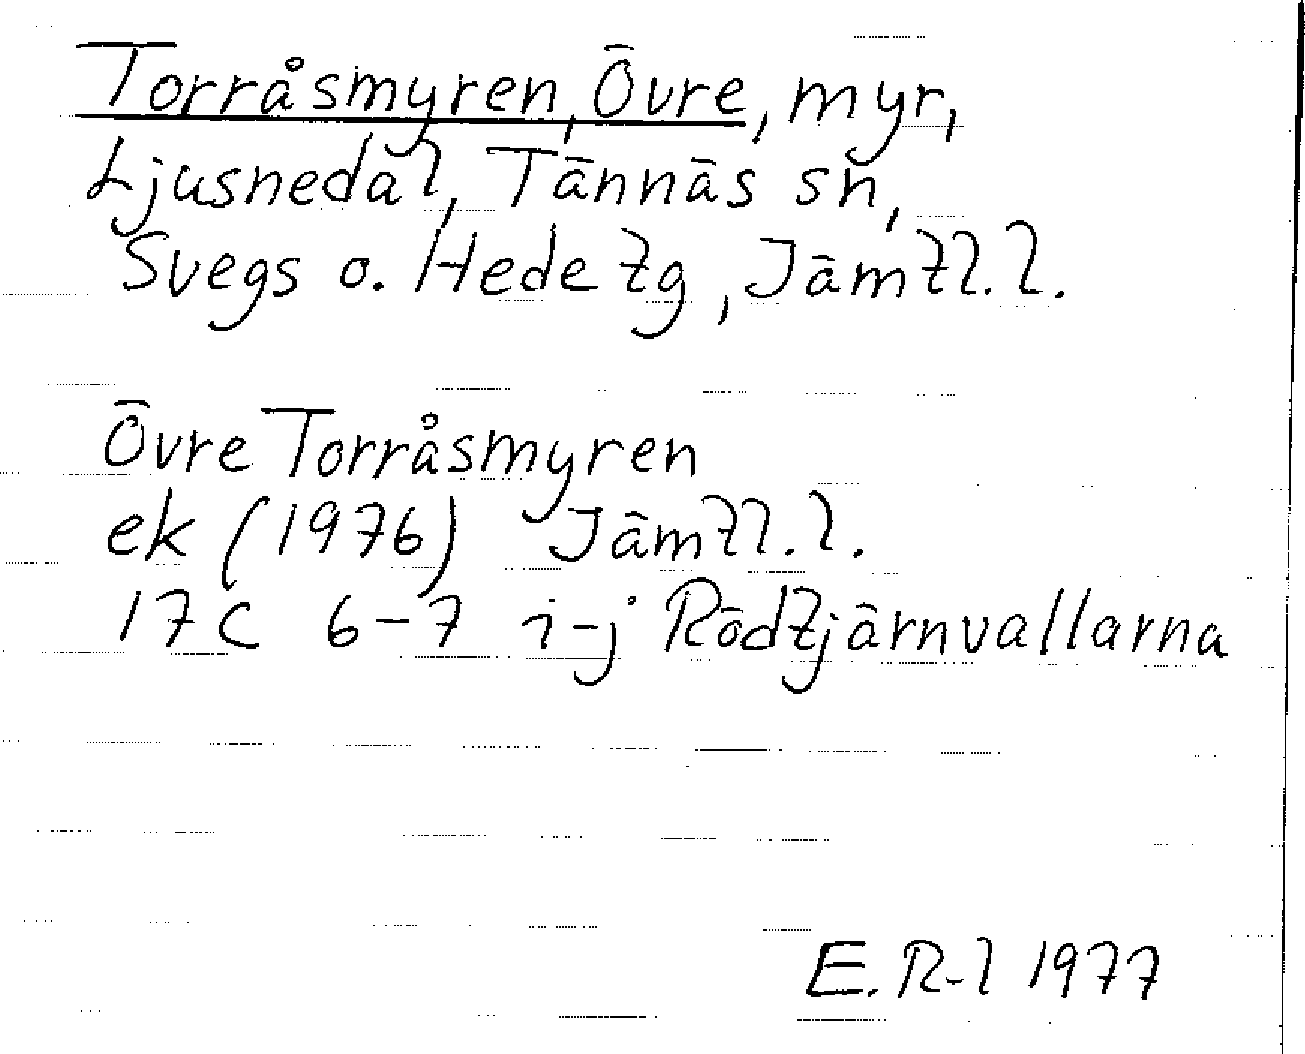 Torråsmyren, Övre, myr,
Ljusnedal, Tännäs sn,
Svegs o. Hede tg, Jämtl. l.
Övre Torråsmyren
ek (1976) Jämtl. l.
17C 6-7 i-j Rödtjärnvallarna
E. R-l 1977